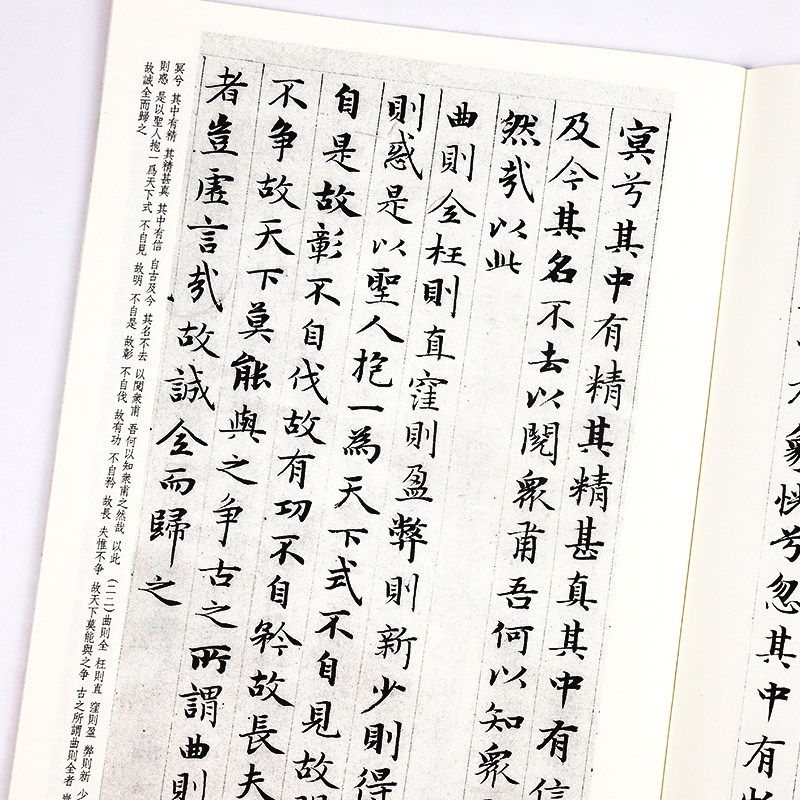 象恍兮忽其中有
冥兮其中有精其精甚真其中有信
及今其名不去以閱衆甫吾何以知衆
然哉以此
曲則全枉則直窪則盈弊則新少則得
則惑是以聖人抱一為天下式不自見故
自是故彰不自伐故有功不自矜故長夫
不争故天下莫能與之争古之所謂曲則
者豈虚言哉故誠全而歸之
冥兮 其中有精 其精甚真 其中有信 自古及今 其名不去 以閱衆甫 吾何以知衆甫之然哉 以此 (二二)曲則全 枉則直 窪則盈 弊則新 少
則惑 是以聖人抱一爲天下式 不自見 故明 不自是 故彰 不自伐 故有功 不自矜 故長 夫惟不争 故天下莫能與之争 古之所謂曲則全者
故誠全而歸之